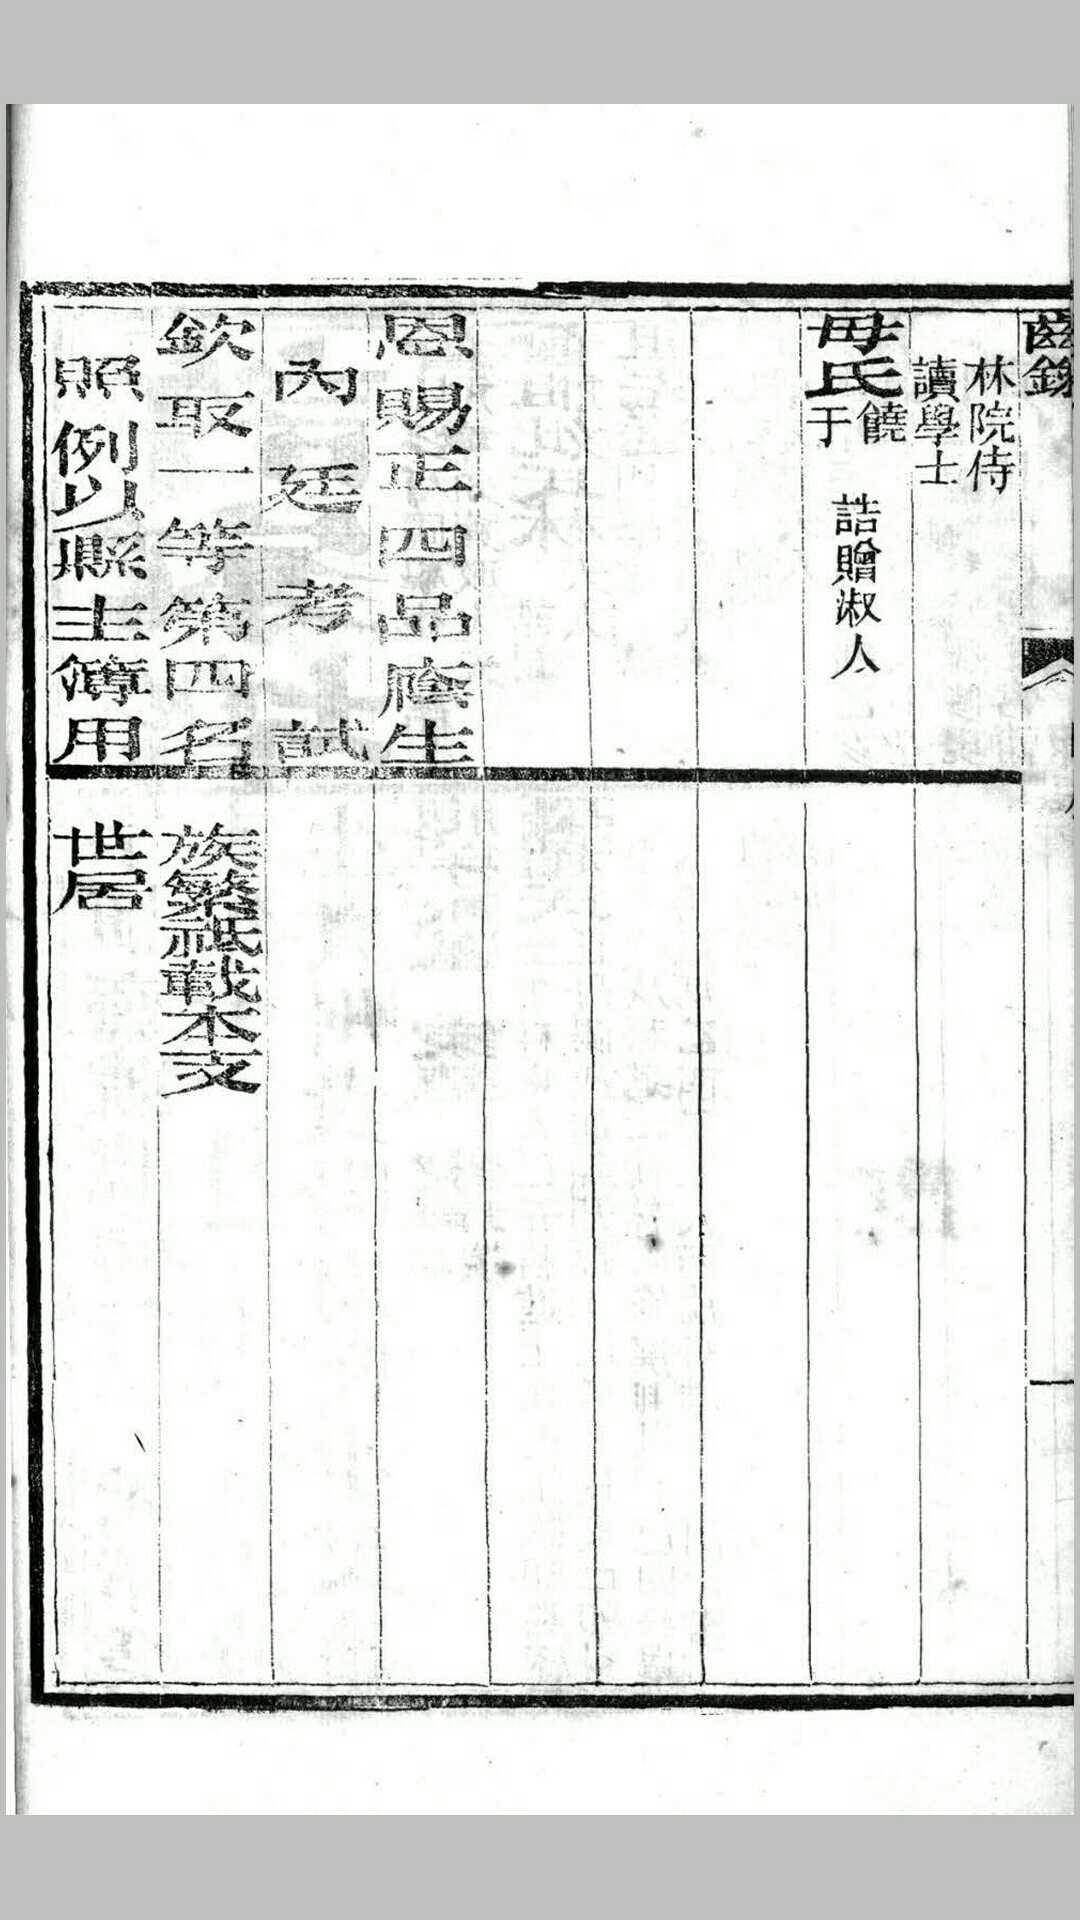 齒錄
林院侍
讀學士
母氏饒于 誥贈淑人
恩賜正四品廕生
內廷考試
欽取一等第四名
照例以縣主簿用
族繁祗載本支
世居